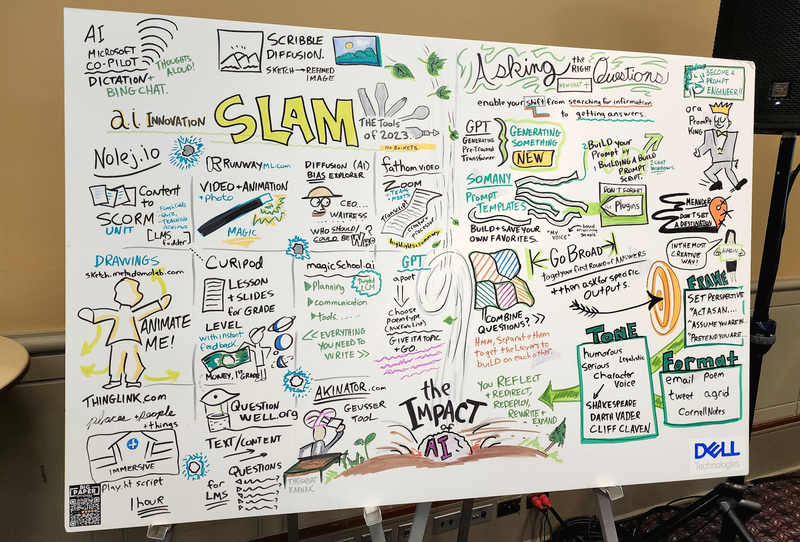 AI
MICROSOFT
CO-PILOT
DICTATION +
BING CHAT.
THOUGHTS
ALOUD!
SCRIBBLE
DIFFUSION.
SKETCH → REFINED
IMAGE
ai INNOVATION
SLAM
THE TOOLS
of 2023
NO BRISKETS
Nolej.io
Content to
SCORM
UNIT
LMS
fodder
RUNWAYML.COM
VIDEO + ANIMATION
+ Photo
MAGIC
DIFFUSION (AI)
BIAS EXPLORER
CEO...
WAITRESS
WHO SHOULD/
COULD BE
fathom.video
ZOOM
TEAMS
MEETS
TRANSCRIPT
highlights + summary
DRAWINGS
sketch.metademolab.com
ANIMATE
ME!
CURIPOD
LESSON
+ SLIDES
for GRADE
LEVEL
with instant
feedback
MONEY, 1st GRADE!
magicSchool.ai
Planning
communication
Tools.....
<< EVERYTHING
YOU NEED TO
WRITE >>
GPT
a poet
↓
choose
poem type
GIVE IT A TOPIC
+ GO.
THINGLINK.COM
places + people
+ things
IMMERSIVE
Play.ht script
1 hour
QUESTION
WELL.ORG
TEXT/CONTENT
QUESTIONS
for
LMS
AKINATOR.COM
GEUSSER
TOOL
THE GREAT
KARNAK
the
IMPACT
of
AI
BIG
PAPER
Asking the RIGHT Questions
NEW CHAT +
enable your shift from searching for information
to getting answers.
BECOME A
PROMPT
ENGINEER!!
or a
Prompt
KING
GPT
GENERATING
PRE-TRAINED
TRANSFORMER
GENERATING
SOMETHING
NEW
Build your
Prompt by
BUILDING A BUILD
PROMPT
SCRIPT.
2 CHAT
WINDOWS.
SO MANY
PROMPT
TEMPLATES
BUILD + SAVE YOUR
OWN FAVORITES.
"MY
VOICE"
DON'T FORGET
Plugins
MEANDER
DON'T SET
A DESTINATION
IN THE MOST
CREATIVE
WAY!
GO BROAD
to get your first Round of ANSWERS
++ then ask for specific
OUTPUTS.
COMBINE
QUESTIONS? >>
Hmm, Separate them
to get the Layers to
BUILD on each other.
YOU REFLECT
+ REDIRECT,
REDEPLOY,
REWRITE +
EXPAND
TONE
humorous
Serious
Character
Voice
SHAKESPEARE
DARTH VADER
CLIFF CLAVEN
FRAME
SET PERSPECTIVE
"ACT AS AN....
"ASSUME YOU ARE A...
"PRETEND YOU ARE...
FORMAT
email poem
tweet a grid
Cornell Notes
DELL
Technologies